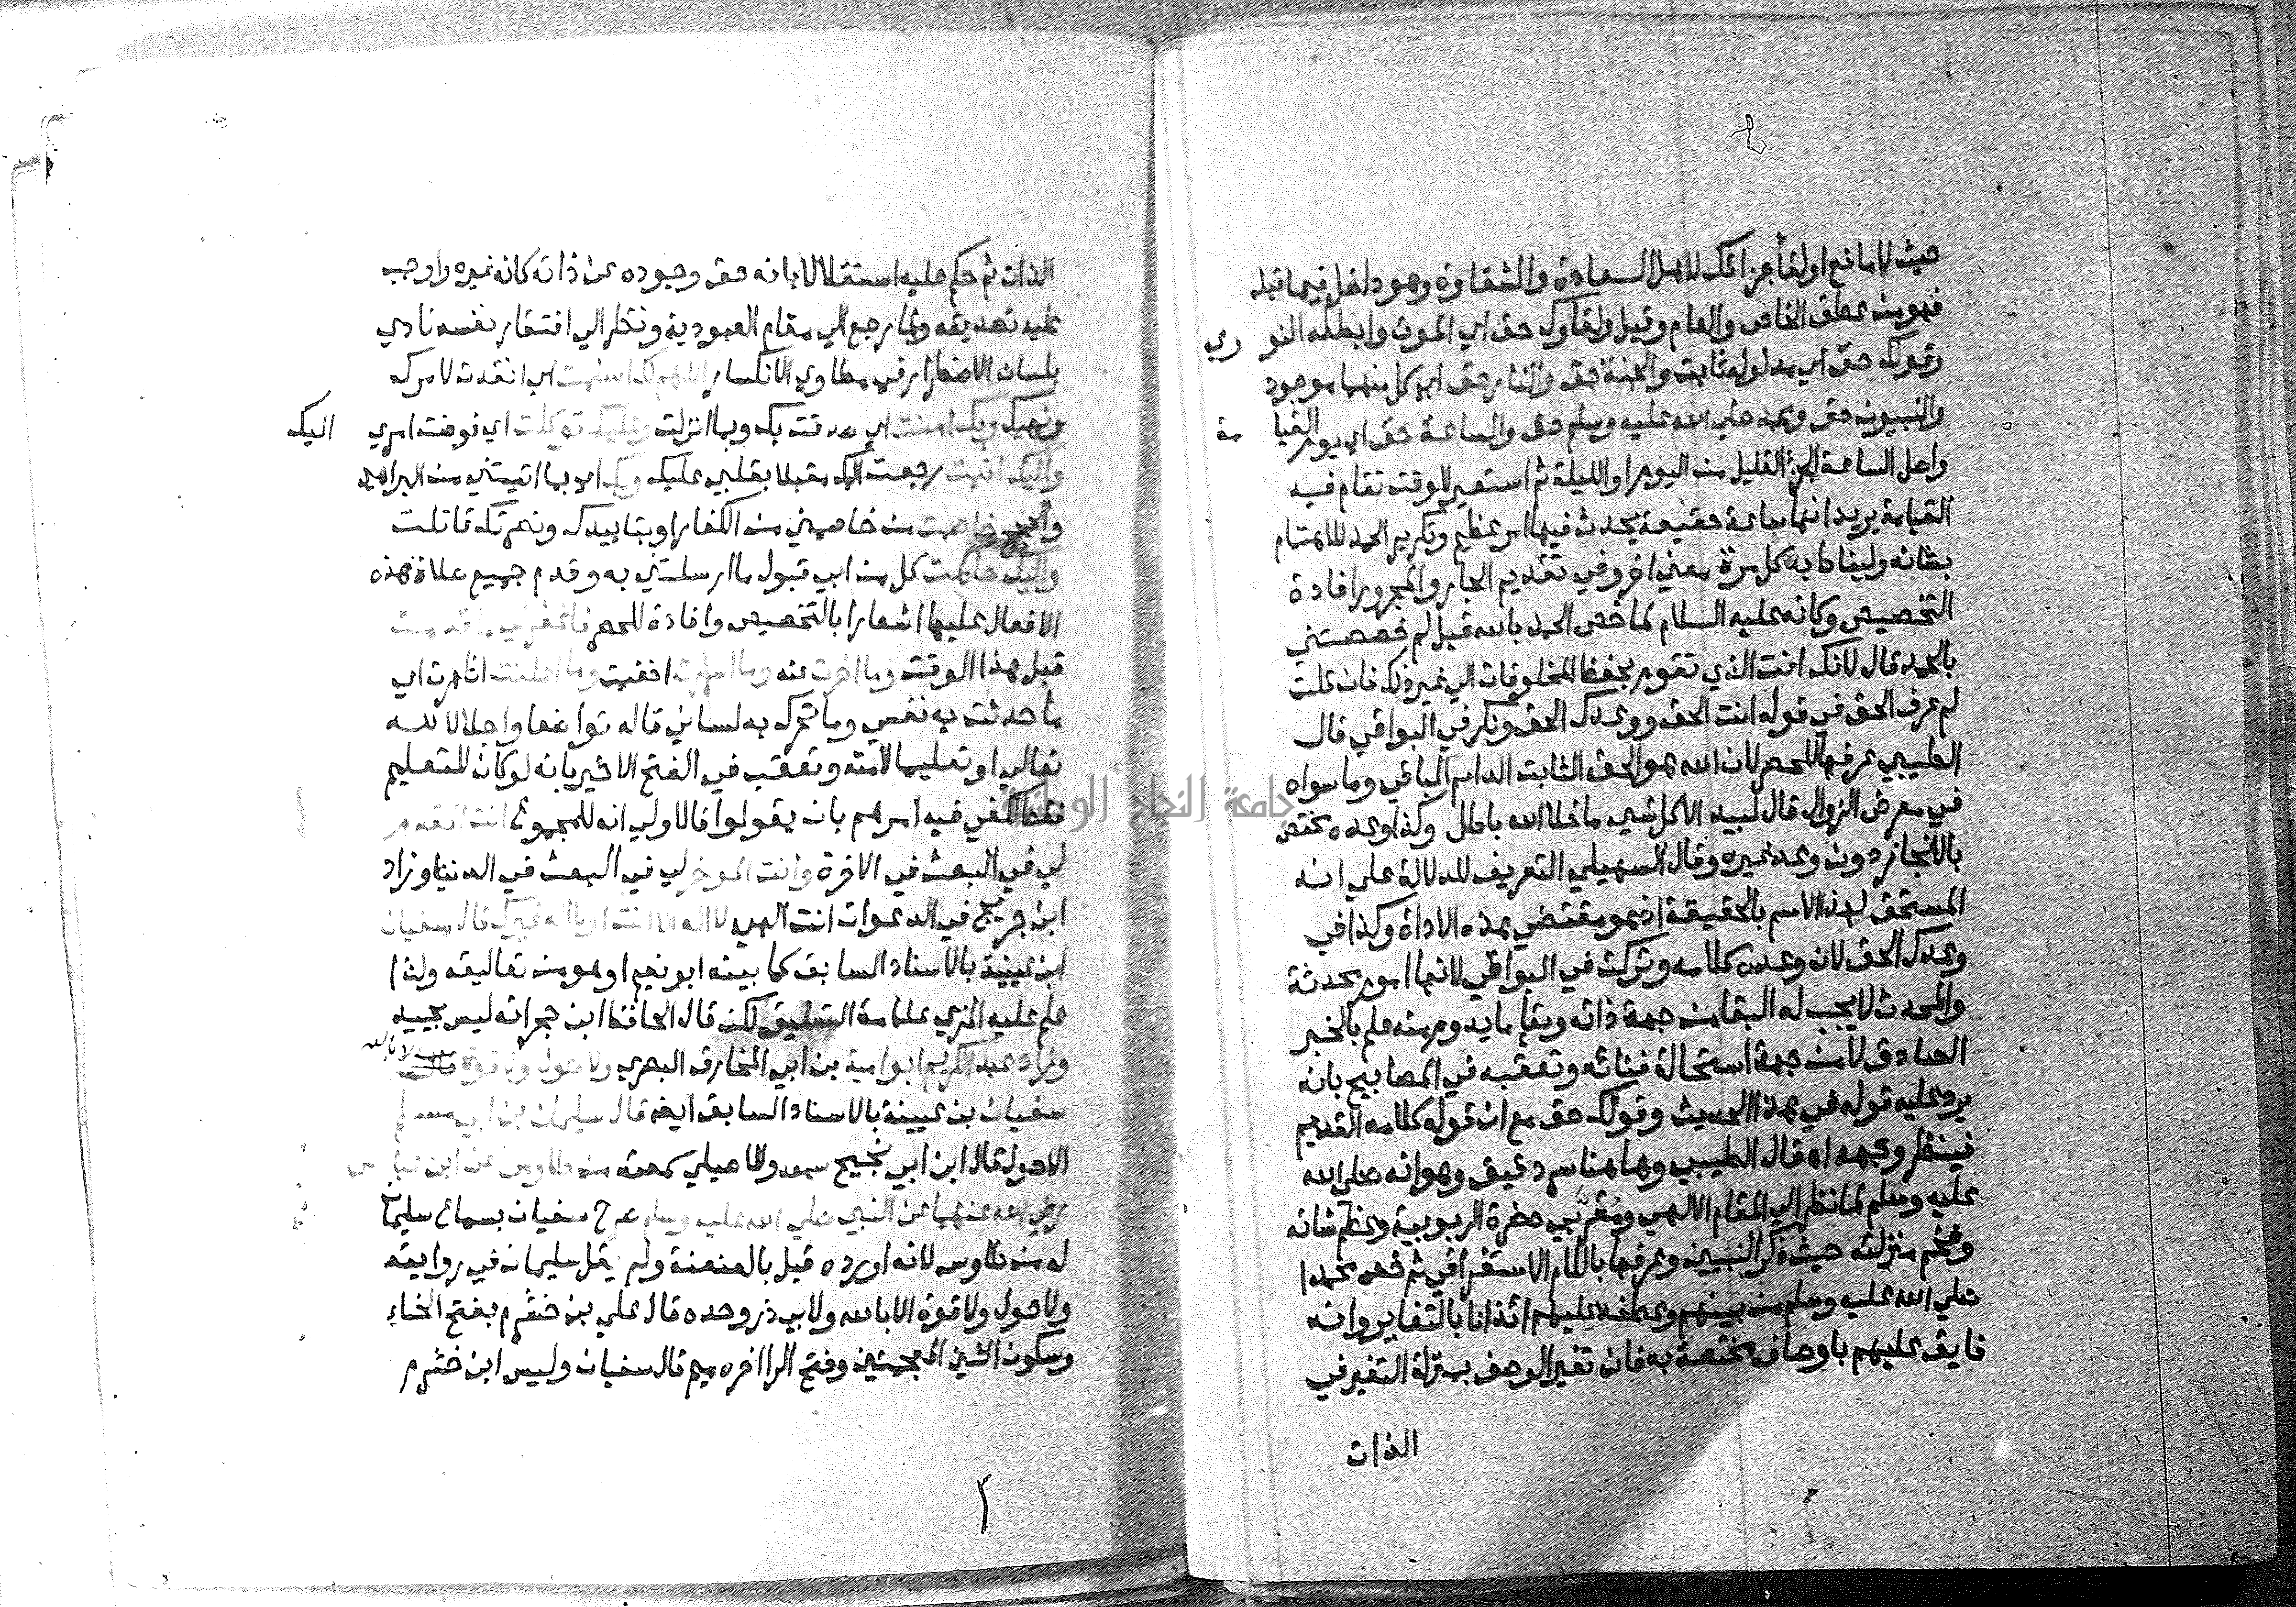 ٤
حيث لا مانع او لقا جزائك لاهل السعادة والشقاوة وهو داخل فيما قبله
فهو من عطف الخاص والعام وقيل ولقاوك حق اي الموت وابطله النووي
وقولك حق اي مدلوله ثابت والجنة حق والنار حق اي كل منهما موجود
والنبيون حق ومحمد صلي الله عليه وسلم حق والساعة حق اي يوم القيامة
واصل الساعة الجزء القليل من اليوم او الليلة ثم استعير للوقت تقام فيه
القيامة يريد انها ساعة خفيفة يحدث فيها امر عظيم وتكرير الحمد للاهتمام
بشانه وليناط به كل مرة معني اخر وفي تقديم الجار والمجرور افادة
التخصيص وكانه عليه السلام لما خص الحمد بالله قيل لم خصصتني
بالحمد قال لانك انت الذي تقوم بحفظ المخلوقات الي غير ذلك فان قلت
لم عرف الحق في قوله انت الحق ووعدك الحق ونكر في البواقي قال
الطيبي عرفها للحصر لان الله هو الحق الثابت الدايم الباقي وما سواه
في معرض الزوال قال لبيد الا كل شي ما خلا الله باطل وكذا وعده مختص
بالانجاز دون وعد غيره وقال السهيلي التعريف للدلالة علي انه
المستحق لهذا الاسم بالحقيقة اذ هو مقتضي هذه الاداة وكذا في
وعدك الحق لان وعده كلامه وتركت في البواقي لانها امور محدثة
والمحدث لا يجب له البقا من جهة ذاته وبقا ما يدوم منه علم بالخبر
الصادق لا من جهة استحالة فنائه وتعقبه في المصابيح بانه
يرد عليه قوله في هذا الحديث وقولك حق مع ان قوله كلامه القديم
فينظر وجهه اه قال الطيبي وهاهنا سر دقيق وهو انه صلي الله
عليه وسلم لما نظر الي المقام الالهي ومقربي حضرة الربوبية وعظم شانه
وفخم منزلته حيث ذكر النبيين وعرفها باللام الاستغراقي ثم خص محمدا
صلي الله عليه وسلم من بينهم وعطفه عليهم ائذانا بالتغاير وانه
فايق عليهم باوصاف مختصة به فان تغير الوصف بمنزلة التغير في
الذات
الذات ثم حكم عليه استقلالا بانه حق وجوده عن ذاته كانه غيره واوجب
عليه تصديقه ولما رجع الي مقام العبودية ونظر الي افتقار نفسه نادي
بلسان الاضطرار في مطاوي الانكسار اللهم لك اسلمت اي انقدت لامرك
ونهيك وبك امنت اي صدقت بك وبما انزلت وعليك توكلت اي فوضت امري اليك
واليك انبت رجعت اليك مقبلا بقلبي عليك وبك اي بما اتيتني من البراهين
والحجج خاصمت من خاصمني من الكفار او بتاييدك ونصرتك قاتلت
واليك حاكمت كل من ابي قبول ما ارسلتني به وقدم جميع صلاة هذه
الافعال عليها اشعارا بالتخصيص وافادة للحصر فاغفر لي ما قدمت
قبل هذا الوقت وما اخرت عنه وما اسررت اخفيت وما اعلنت اظهرت اي
ما حدثت به نفسي وما تحرك به لساني قاله تواضعا واجلالا لله
تعالي او تعليما لامته وتعقب في الفتح الاخير بانه لو كان للتعليم
فقط لكفي فيه امرهم بان يقولوا فالاولي انه للمجموع انت المقدم
لي في البعث في الاخرة وانت الموخر لي في البعث في الدنيا وزاد
ابن جريج في الدعوات انت الهي لا اله الا انت او لا اله غيرك قال سفيان
ابن عيينة بالاسناد السابق كما بينه ابو نعيم او هو من تعاليقه ولذا
علم عليه المزي علامة التعليق لكن قال الحافظ ابن حجر انه ليس بجيد
وزاد عبد الكريم ابو امية بن ابي المخارق البصري ولا حول ولا قوة الا بالله قال
سفيان بن عيينة بالاسناد السابق ايضا قال سليمان بن ابي مسلم
الاحول خال ابن ابي نجيح سمعه وللاصيلي سمعته من طاوس عن ابن عباس
رضي الله عنهما عن النبي صلي الله عليه وسلم صرح سفيان بسماع سليمان
له من طاوس لانه اورده قبل بالعنعنة ولم يقل سليمان في روايته
ولا حول ولا قوة الا بالله ولابي ذر وحده قال علي بن خشرم بفتح الخاء
وسكون الشين المعجمتين وفتح الرا اخره ميم قال سفيان وليس ابن خشرم
جامعة النجاح الوطنية